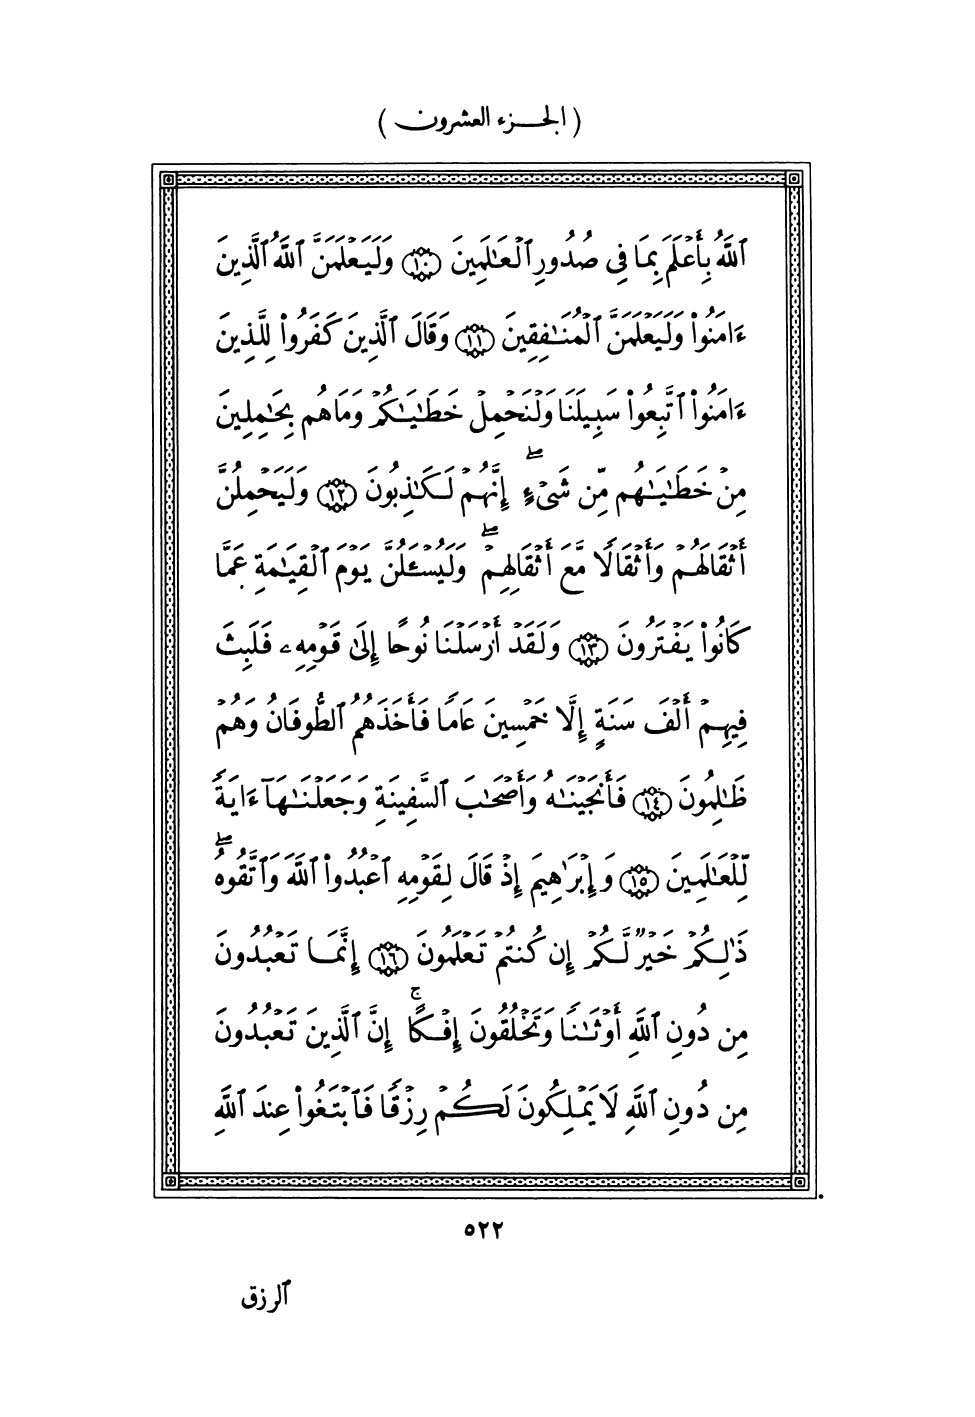 ( الجزء العشرون )
ٱللَّهُ بِأَعْلَمَ بِمَا فِى صُدُورِ ٱلْعَٰلَمِينَ ١٠ وَلَيَعْلَمَنَّ ٱللَّهُ ٱلَّذِينَ
ءَامَنُوا۟ وَلَيَعْلَمَنَّ ٱلْمُنَٰفِقِينَ ١١ وَقَالَ ٱلَّذِينَ كَفَرُوا۟ لِلَّذِينَ
ءَامَنُوا۟ ٱتَّبِعُوا۟ سَبِيلَنَا وَلْنَحْمِلْ خَطَٰيَٰكُمْ وَمَا هُم بِحَٰمِلِينَ
مِنْ خَطَٰيَٰهُم مِّن شَىْءٍ ۖ إِنَّهُمْ لَكَٰذِبُونَ ١٢ وَلَيَحْمِلُنَّ
أَثْقَالَهُمْ وَأَثْقَالًا مَّعَ أَثْقَالِهِمْ ۖ وَلَيُسْـَٔلُنَّ يَوْمَ ٱلْقِيَٰمَةِ عَمَّا
كَانُوا۟ يَفْتَرُونَ ١٣ وَلَقَدْ أَرْسَلْنَا نُوحًا إِلَىٰ قَوْمِهِۦ فَلَبِثَ
فِيهِمْ أَلْفَ سَنَةٍ إِلَّا خَمْسِينَ عَامًا فَأَخَذَهُمُ ٱلطُّوفَانُ وَهُمْ
ظَٰلِمُونَ ١٤ فَأَنجَيْنَٰهُ وَأَصْحَٰبَ ٱلسَّفِينَةِ وَجَعَلْنَٰهَآ ءَايَةً
لِّلْعَٰلَمِينَ ١٥ وَإِبْرَٰهِيمَ إِذْ قَالَ لِقَوْمِهِ ٱعْبُدُوا۟ ٱللَّهَ وَٱتَّقُوهُ ۖ
ذَٰلِكُمْ خَيْرٌ لَّكُمْ إِن كُنتُمْ تَعْلَمُونَ ١٦ إِنَّمَا تَعْبُدُونَ
مِن دُونِ ٱللَّهِ أَوْثَٰنًا وَتَخْلُقُونَ إِفْكًا ۚ إِنَّ ٱلَّذِينَ تَعْبُدُونَ
مِن دُونِ ٱللَّهِ لَا يَمْلِكُونَ لَكُمْ رِزْقًا فَٱبْتَغُوا۟ عِندَ ٱللَّهِ
٥٢٢
ٱلرزق